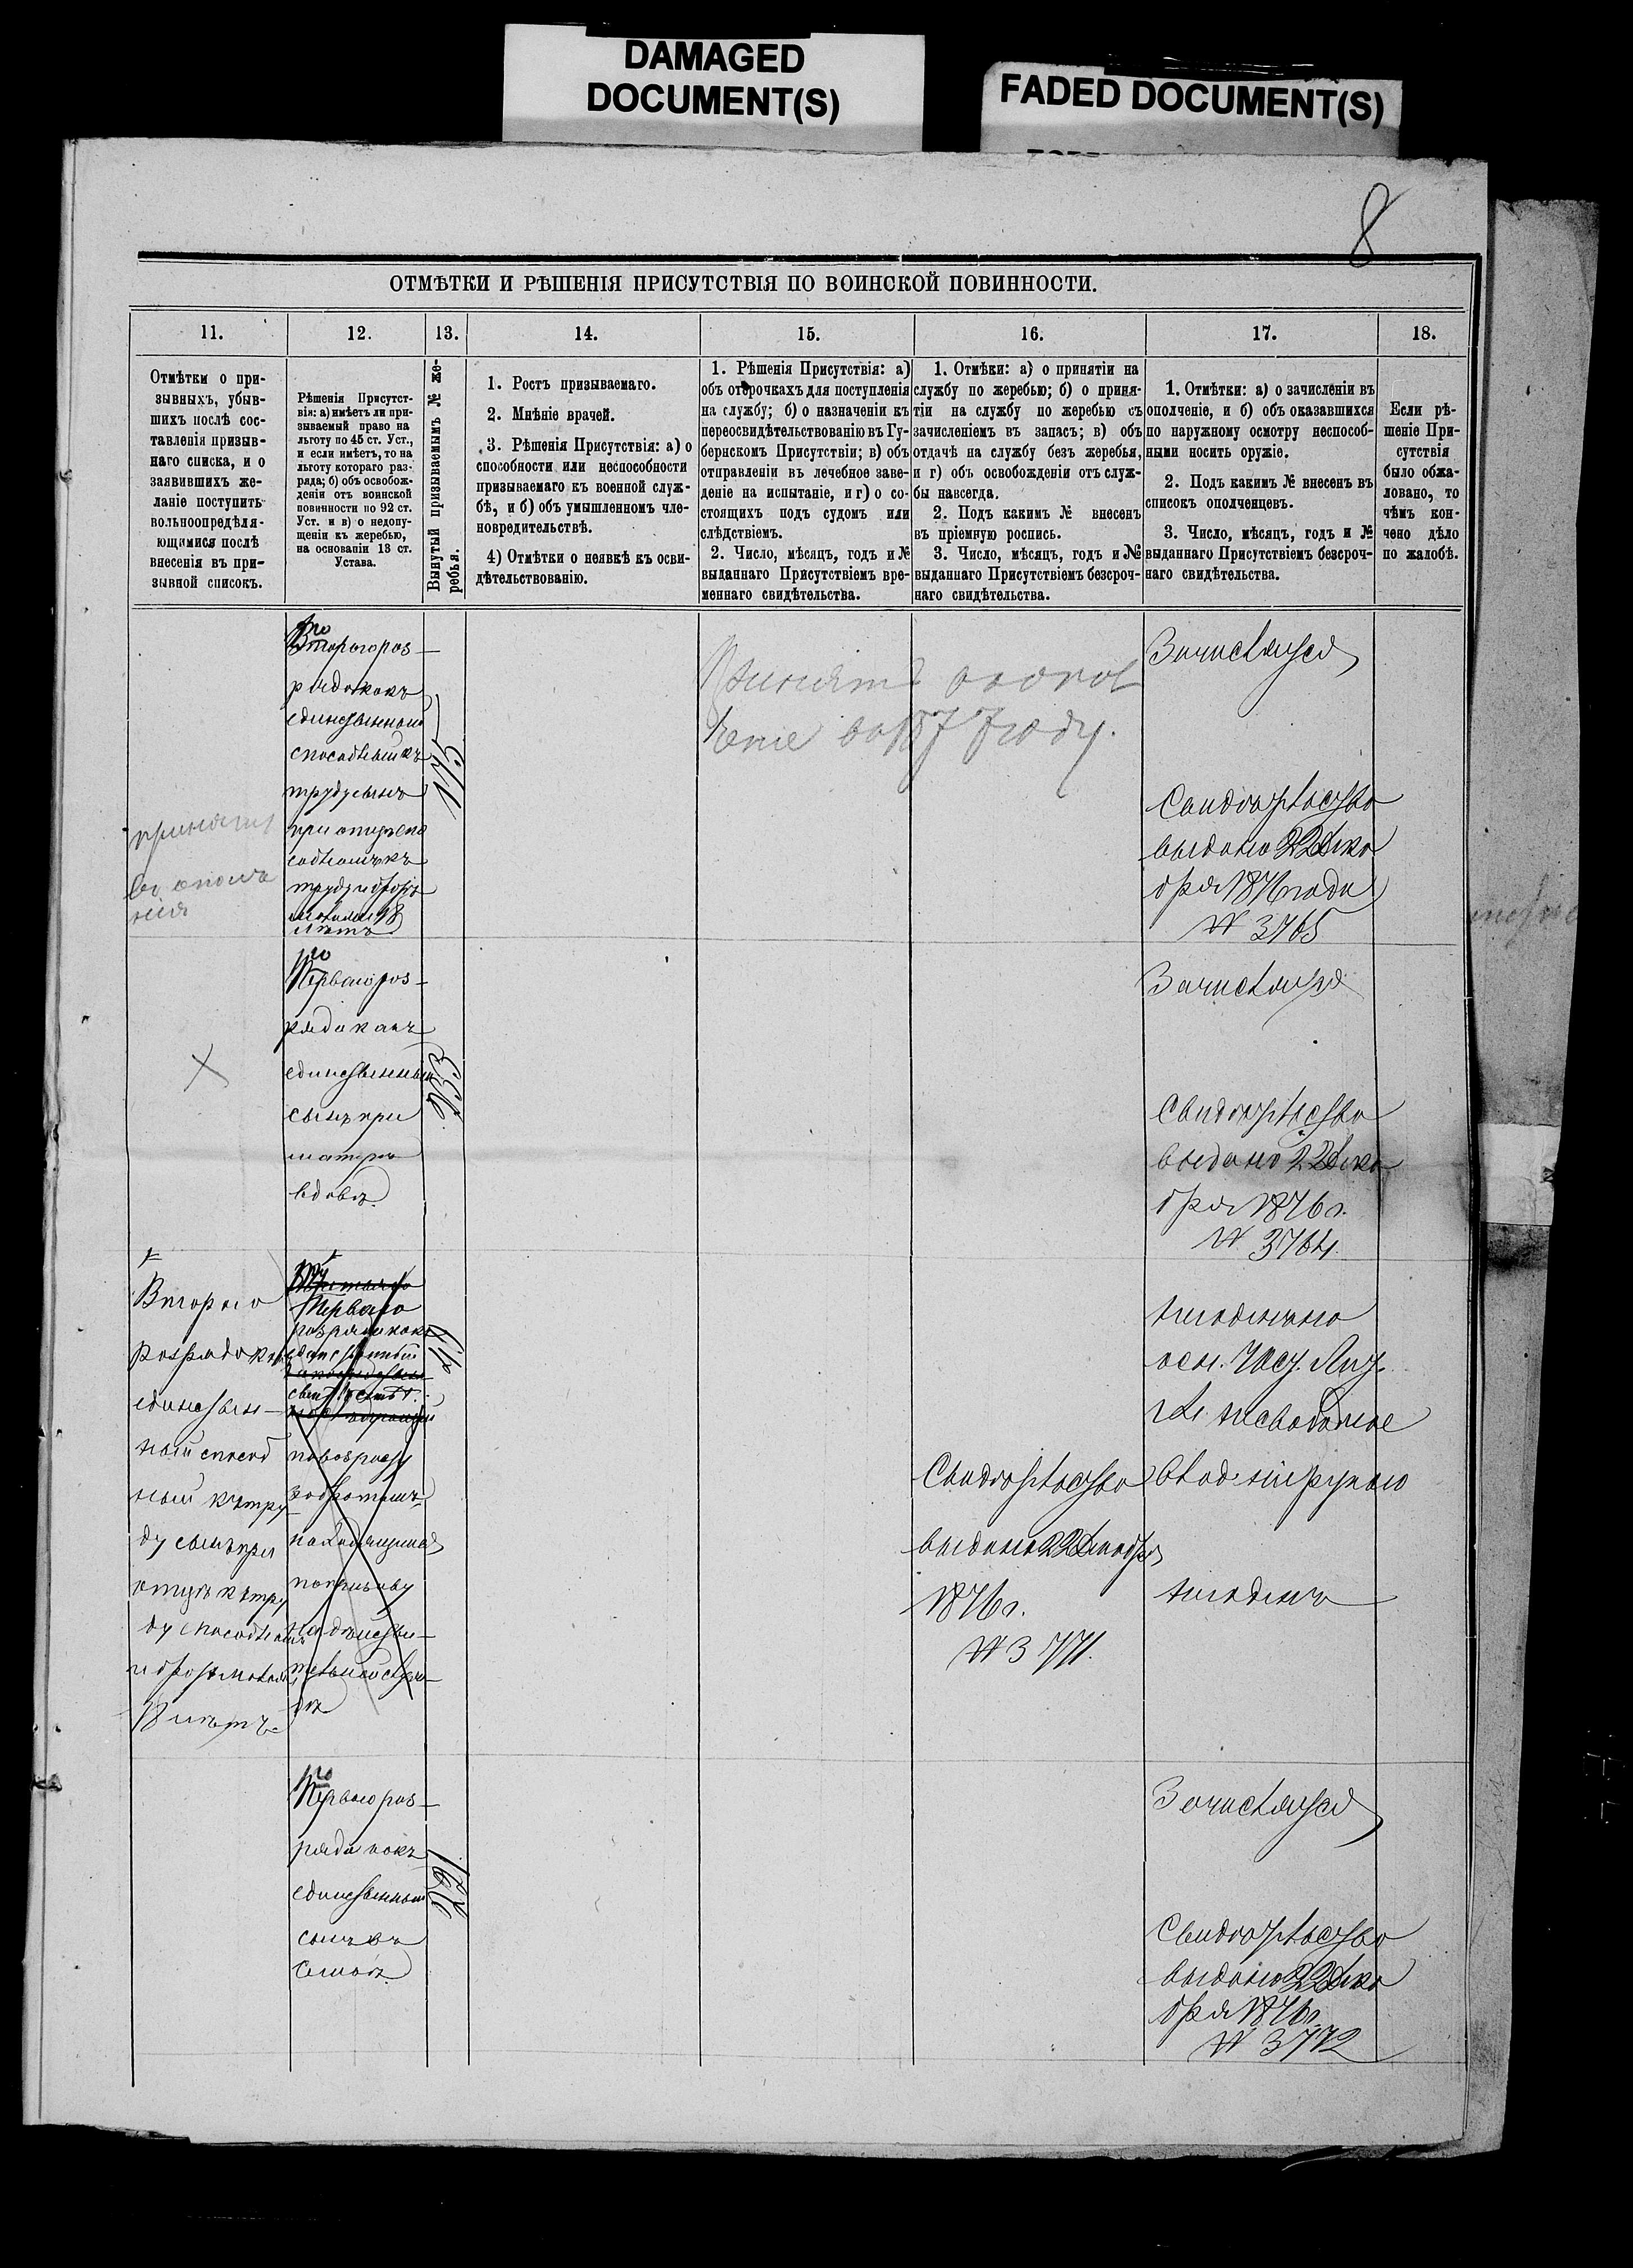 DAMAGED
DOCUMENT(S)
FADED DOCUMENT(S)
8
ОТМѢТКИ И РѢШЕНІЯ ПРИСУТСТВІЯ ПО ВОИНСКОЙ ПОВИННОСТИ.
11.
12.
13.
14.
15.
16.
17.
18.
Отмѣтки о при-
зывныхъ, убыв-
шихъ послѣ сос-
тавленія призыв-
наго списка, и о
заявившихъ же-
ланіе поступить
вольноопредѣля-
ющимися послѣ
внесенія въ при-
зывной списокъ.
Рѣшенія Присутст-
вія: а) имѣетъ ли при-
зываемый право на
льготу по 45 ст. Уст.,
и если имѣетъ, то на
льготу котораго раз-
ряда; б) объ освобож-
деніи отъ воинской
повинности по 92 ст.
Уст. и в) о недопу-
щеніи къ жеребью,
на основаніи 13 ст.
Устава.
Вынутый призываемымъ № же-
ребья.
1. Ростъ призываемаго.
2. Мнѣніе врачей.
3. Рѣшенія Присутствія: а) о
способности или неспособности
призываемаго къ военной служ-
бѣ, и б) объ умышленномъ чле-
новредительствѣ.
4) Отмѣтки о неявкѣ къ осви-
дѣтельствованію.
1. Рѣшенія Присутствія: а)
объ отсрочкахъ для поступленія
на службу; б) о назначеніи къ
переосвидѣтельствованію въ Гу-
бернскомъ Присутствіи; в) объ
отправленіи въ лечебное заве-
деніе на испытаніе, и г) о со-
стоящихъ подъ судомъ или
слѣдствіемъ.
2. Число, мѣсяцъ, годъ и №
выданнаго Присутствіемъ вре-
меннаго свидѣтельства.
1. Отмѣки: а) о принятіи на
службу по жеребью; б) о приня-
тіи на службу по жеребью съ
зачисленіемъ въ запасъ; в) объ
отдачѣ на службу безъ жеребья,
и г) объ освобожденіи отъ служ-
бы навсегда.
2. Подъ какимъ № внесенъ
въ пріемную роспись.
3. Число, мѣсяцъ, годъ и №
выданнаго Присутствіемъ безсроч-
наго свидѣтельства.
1. Отмѣтки: а) о зачисленіи въ
ополченіе, и б) объ оказавшихся
по наружному осмотру неспособ-
ными носить оружіе.
2. Подъ какимъ № внесенъ въ
списокъ ополченцевъ.
3. Число, мѣсяцъ, годъ и №
выданнаго Присутствіемъ безсроч-
наго свидѣтельства.
Если рѣ-
шеніе При-
сутствія
было обжа-
ловано, то
чѣмъ кон-
чено дѣло
по жалобѣ.
Второго раз-
ряда какъ
единственный
способный къ
труду сынъ
при отцѣ спо
собномъ къ
труду и братѣ
моложе 18
лѣтъ
115
Зачисляется
Свидѣтельство
выдано 22 Дека
бря 1876 года
№ 3765
Перваго раз-
ряда какъ
единственный
сынъ при
матери
вдовѣ.
Зачисляется
Свидѣтельство
выдано 22 Дека
бря 1876 г.
№ 3764.
Второго
разряда какъ
единствен-
ный способ
ный къ тру
ду сынъ при
отцѣ къ тру
ду способномъ
и братѣ моложе
18 лѣтъ.
Перваго
разряда какъ
по возрасту
за братомъ
находящимся
по призыву
на дѣйстви-
тельной служ-
бѣ
Свидѣтельство
выдано 22 Декабря
1876 г.
№ 3771.
негоденъ
Перваго раз-
ряда какъ
единственный
сынъ въ
семьѣ.
Зачисляется
Свидѣтельство
выдано 22 Дека
бря 1876 г.
№ 3772